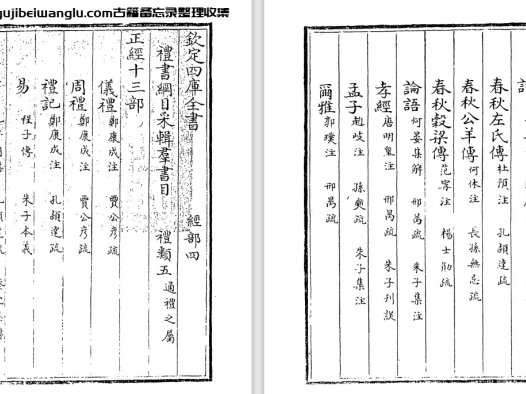 gujibeiwanglu.com古籍备忘录整理收集
欽定四庫全書 經部四
禮書綱目采輯羣書目 禮類五通禮之屬
正經十三部
儀禮鄭康成注 賈公彥疏
周禮鄭康成注 賈公彥疏
禮記鄭康成注 孔穎達疏
易程子傳 朱子本義
春秋左氏傳杜預注 孔穎達疏
春秋公羊傳何休注 長孫無忌疏
春秋穀梁傳范甯注 楊士勛疏
論語何晏集解 邢昺疏 朱子集注
孝經唐明皇注 邢昺疏 朱子刊誤
孟子趙岐注 孫奭疏 朱子集注
爾雅郭璞注 邢昺疏